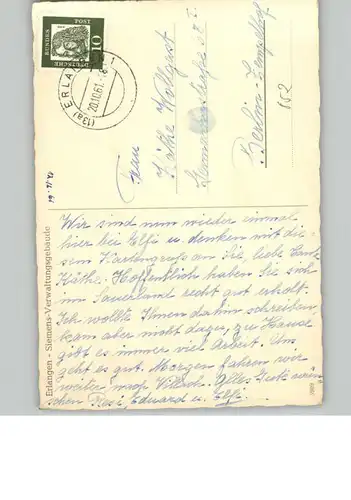 DEUTSCHE BUNDESPOST
10
(13a) ERLANGEN
20.10.61
Frau
Käthe
Berlin-Tempelhof
Erlangen - Siemens-Verwaltungsgebäude
Wir sind nun wieder einmal
hier bei Elfi u. denken mit die-
sem Kartengruß an Sie, liebe Tante
Käthe. Hoffentlich haben Sie sich
im Sauerland recht gut erholt.
Ich wollte Ihnen dahin schreiben,
kam aber nicht dazu, zu Hause
gibt es immer viel Arbeit. Uns
geht es gut. Morgen fahren wir
weiter nach Villach. Alles Gute wün-
schen Resi, Eduard u. Elfi.